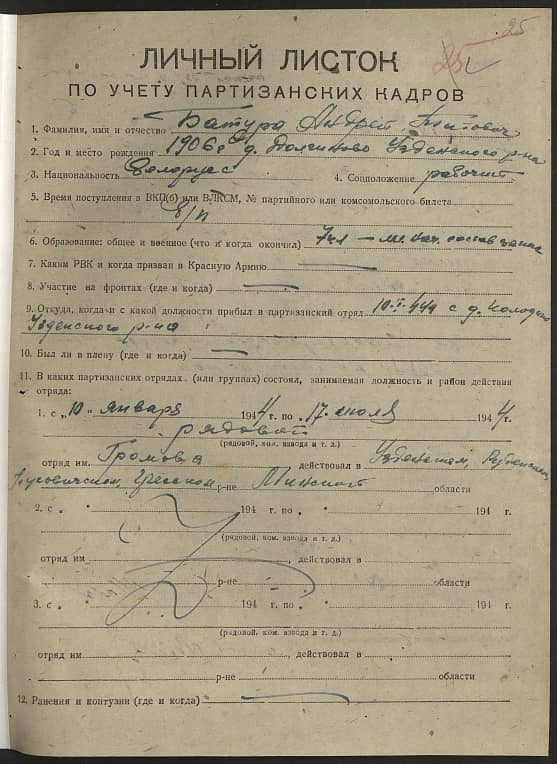 25
25
ЛИЧНЫЙ ЛИСТОК
ПО УЧЕТУ ПАРТИЗАНСКИХ КАДРОВ
1. Фамилия, имя и отчество Батура Андрей Титович
2. Год и место рождения 1906 г. д. Узденского р-на
3. Национальность белорус 4. Соцположение рабочий
5. Время поступления в ВКП(б) или ВЛКСМ, № партийного или комсомольского билета
б/п
6. Образование: общее и военное (что и когда окончил) 7 кл — мл. нач. состав запаса
7. Каким РВК и когда призван в Красную Армию —
8. Участие на фронтах (где и когда) —
9. Откуда, когда и с какой должности прибыл в партизанский отряд 10-I-44 г с д.
Узденского р-на
10. Был ли в плену (где и когда) —
11. В каких партизанских отрядах (или группах) состоял, занимаемая должность и район действия
отряда:
1. с „10" января 1944 г. по „17" июля 1944 г.
рядовой
(рядовой, ком. взвода и т. д.)
отряд им. Громова действовал в Узденском,
Пуховичском, Гресском р-не Минской области
2. с „ 194 г. по „ 194 г.
(рядовой, ком. взвода и т. д.)
отряд им , действовал в
р-не области
3. с „ 194 г. по „ 194 г.
(рядовой, ком. взвода и т. д.)
отряд им. , действовал в
р-не области
12. Ранения и контузии (где и когда) —